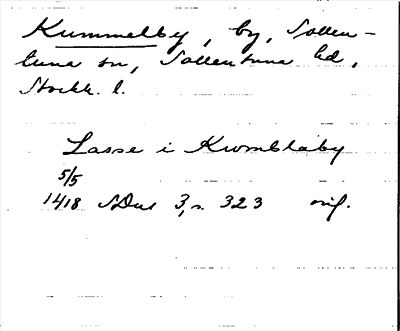 Kummelby, by, Sollen-
tuna sn, Sollentuna hd,
Stockh. l.
Lasse i Kwmblaby
5/5
1418 SDns 3, s. 323 orig.